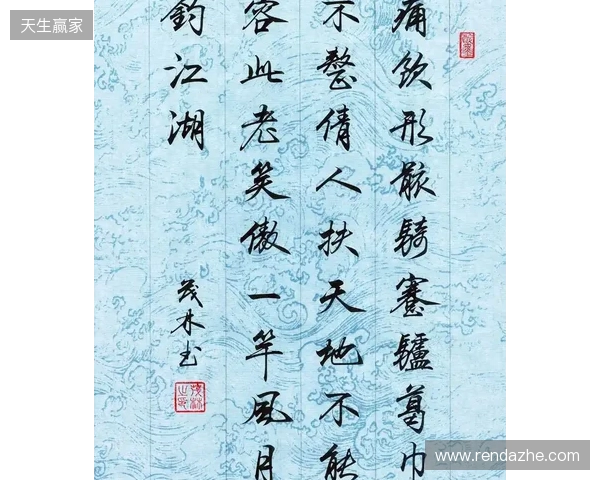 天生赢家
痛飲形骸騎蹇驢葛巾
不整倩人扶天地不能
容此老笑傲一竿風月
釣江湖
茂林书
www.rendazhe.com